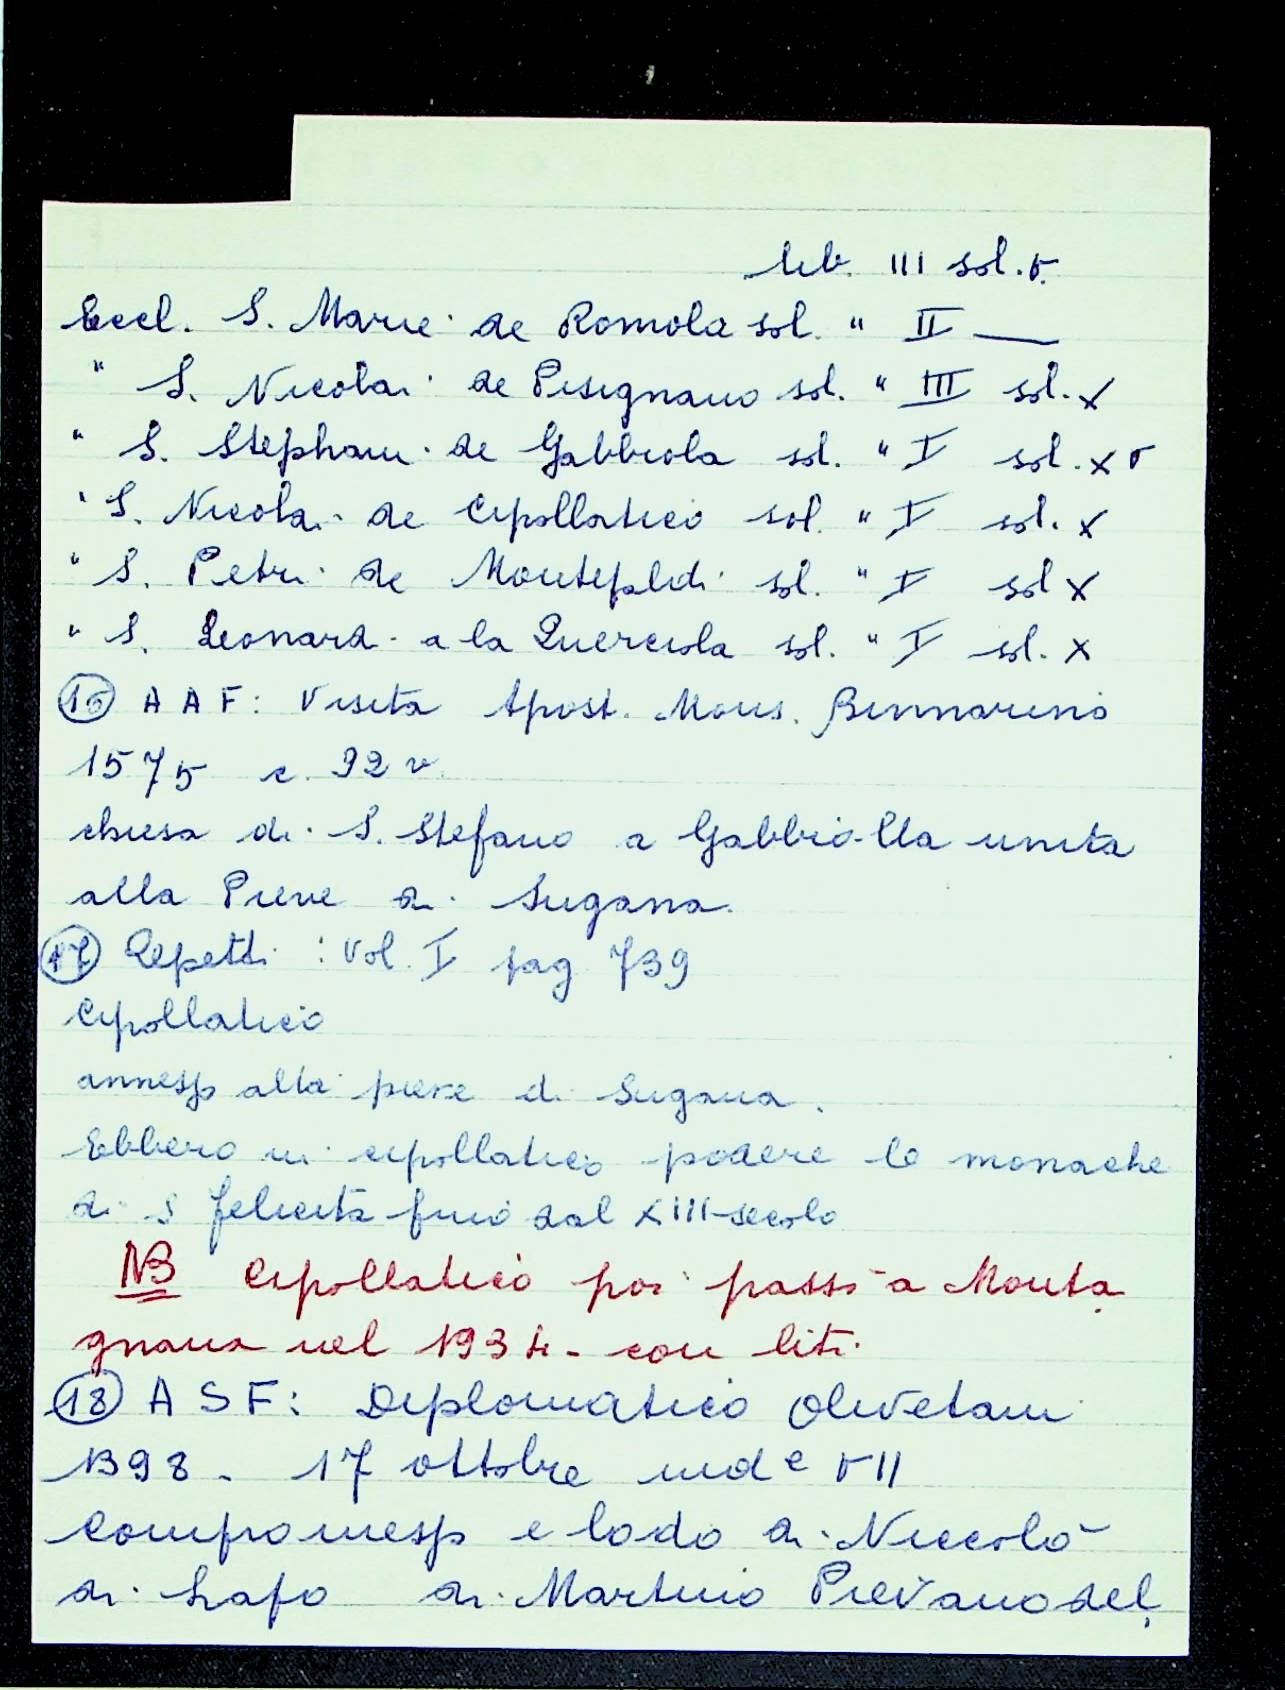 lib. III sol. V.
Eccl. S. Marie de Romola sol. " II —
" S. Nicolai de Pisignano sol. " III sol. X
" S. Stephani de Gabbiola sol. " I sol. XV
" S. Nicolai de Cipollatico sol. " I sol. X
" S. Petri de Montepldi sol. " I sol X
" S. Leonardi a la Querciola sol. " I sol. X
16 A A F: Visita Apost. Mons. Binnarino
1575 c. 92 v.
chiesa di S. Stefano a Gabbiolla unita
alla Pieve di Sugana.
17 Repetti: Vol. I pag 739
Cipollatico
annesso alla pieve di Sugana.
Ebbero in cipollatico podere le monache
di S Felicita fino dal XIII secolo
NB Cipollatico poi passò a Monta
gnana nel 1934 - con liti.
18 A S F: Diplomatico Olivetani
1398 - 17 ottobre inde VII
Compromesso e lodo di Niccolò
di Lapo di Martino Pievano del